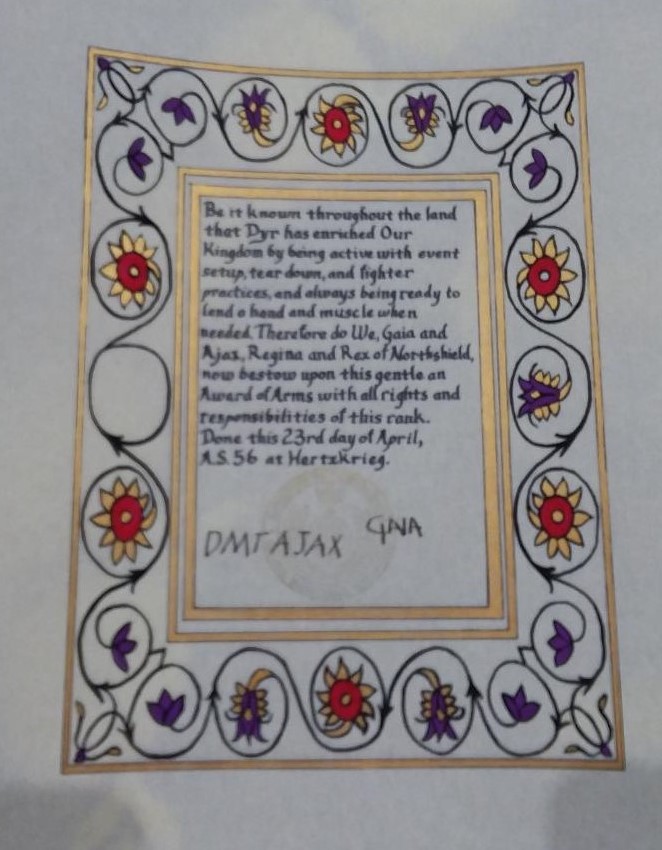 Be it known throughout the land
that Dyr has enriched Our
Kingdom by being active with event
setup, tear down, and fighter
practices, and always being ready to
lend a hand and muscle when
needed. Therefore do We, Gaia and
Ajax, Regina and Rex of Northshield,
now bestow upon this gentle an
Award of Arms with all rights and
responsibilities of this rank.
Done this 23rd day of April,
A.S. 56 at Hertzkrieg.
GAIA
AJAX